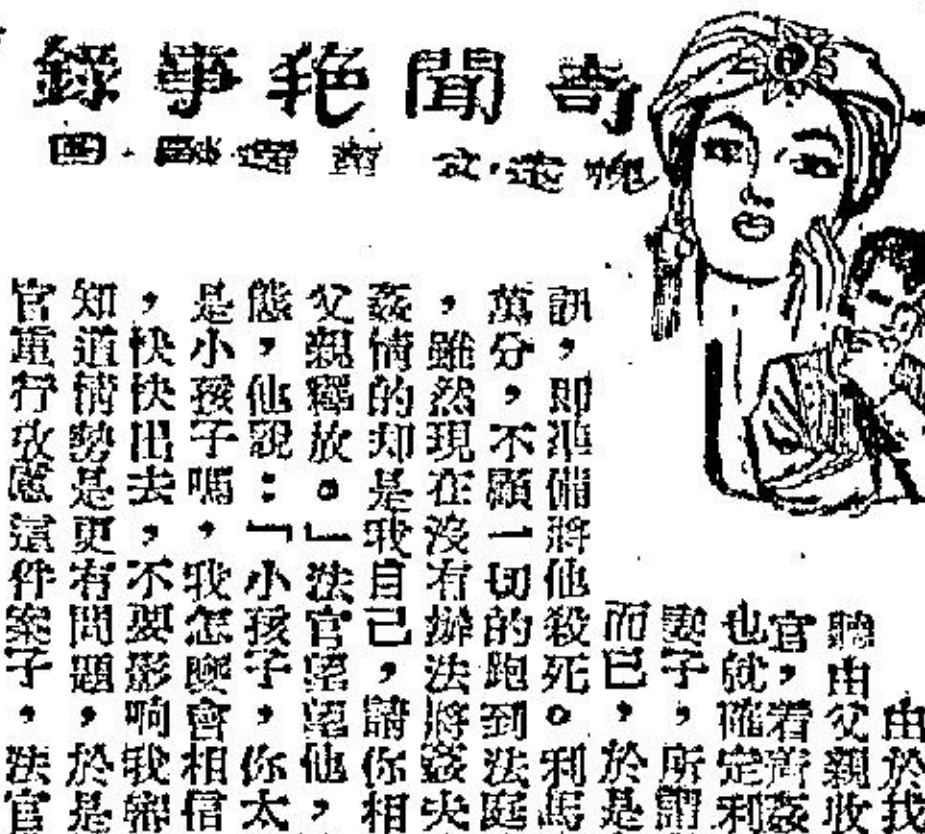 奇聞艷事錄
文
由於找
聽由父親收
官,着姦
也就確定利
妻子,所謂
而已,於是
訊,即準備將他殺死。利馬
萬分,不顧一切的跑到法庭
,雖然現在沒有辦法將姦夫
姦情的却是我自己,請你相
父親釋放。」法官望望他,
態,他說:「小孩子,你太
是小孩子嗎,我怎麼會相信
,快快出去,不要影响我辦
知道情勢是更有問題,於是
官重行攷慮這件案子,法官